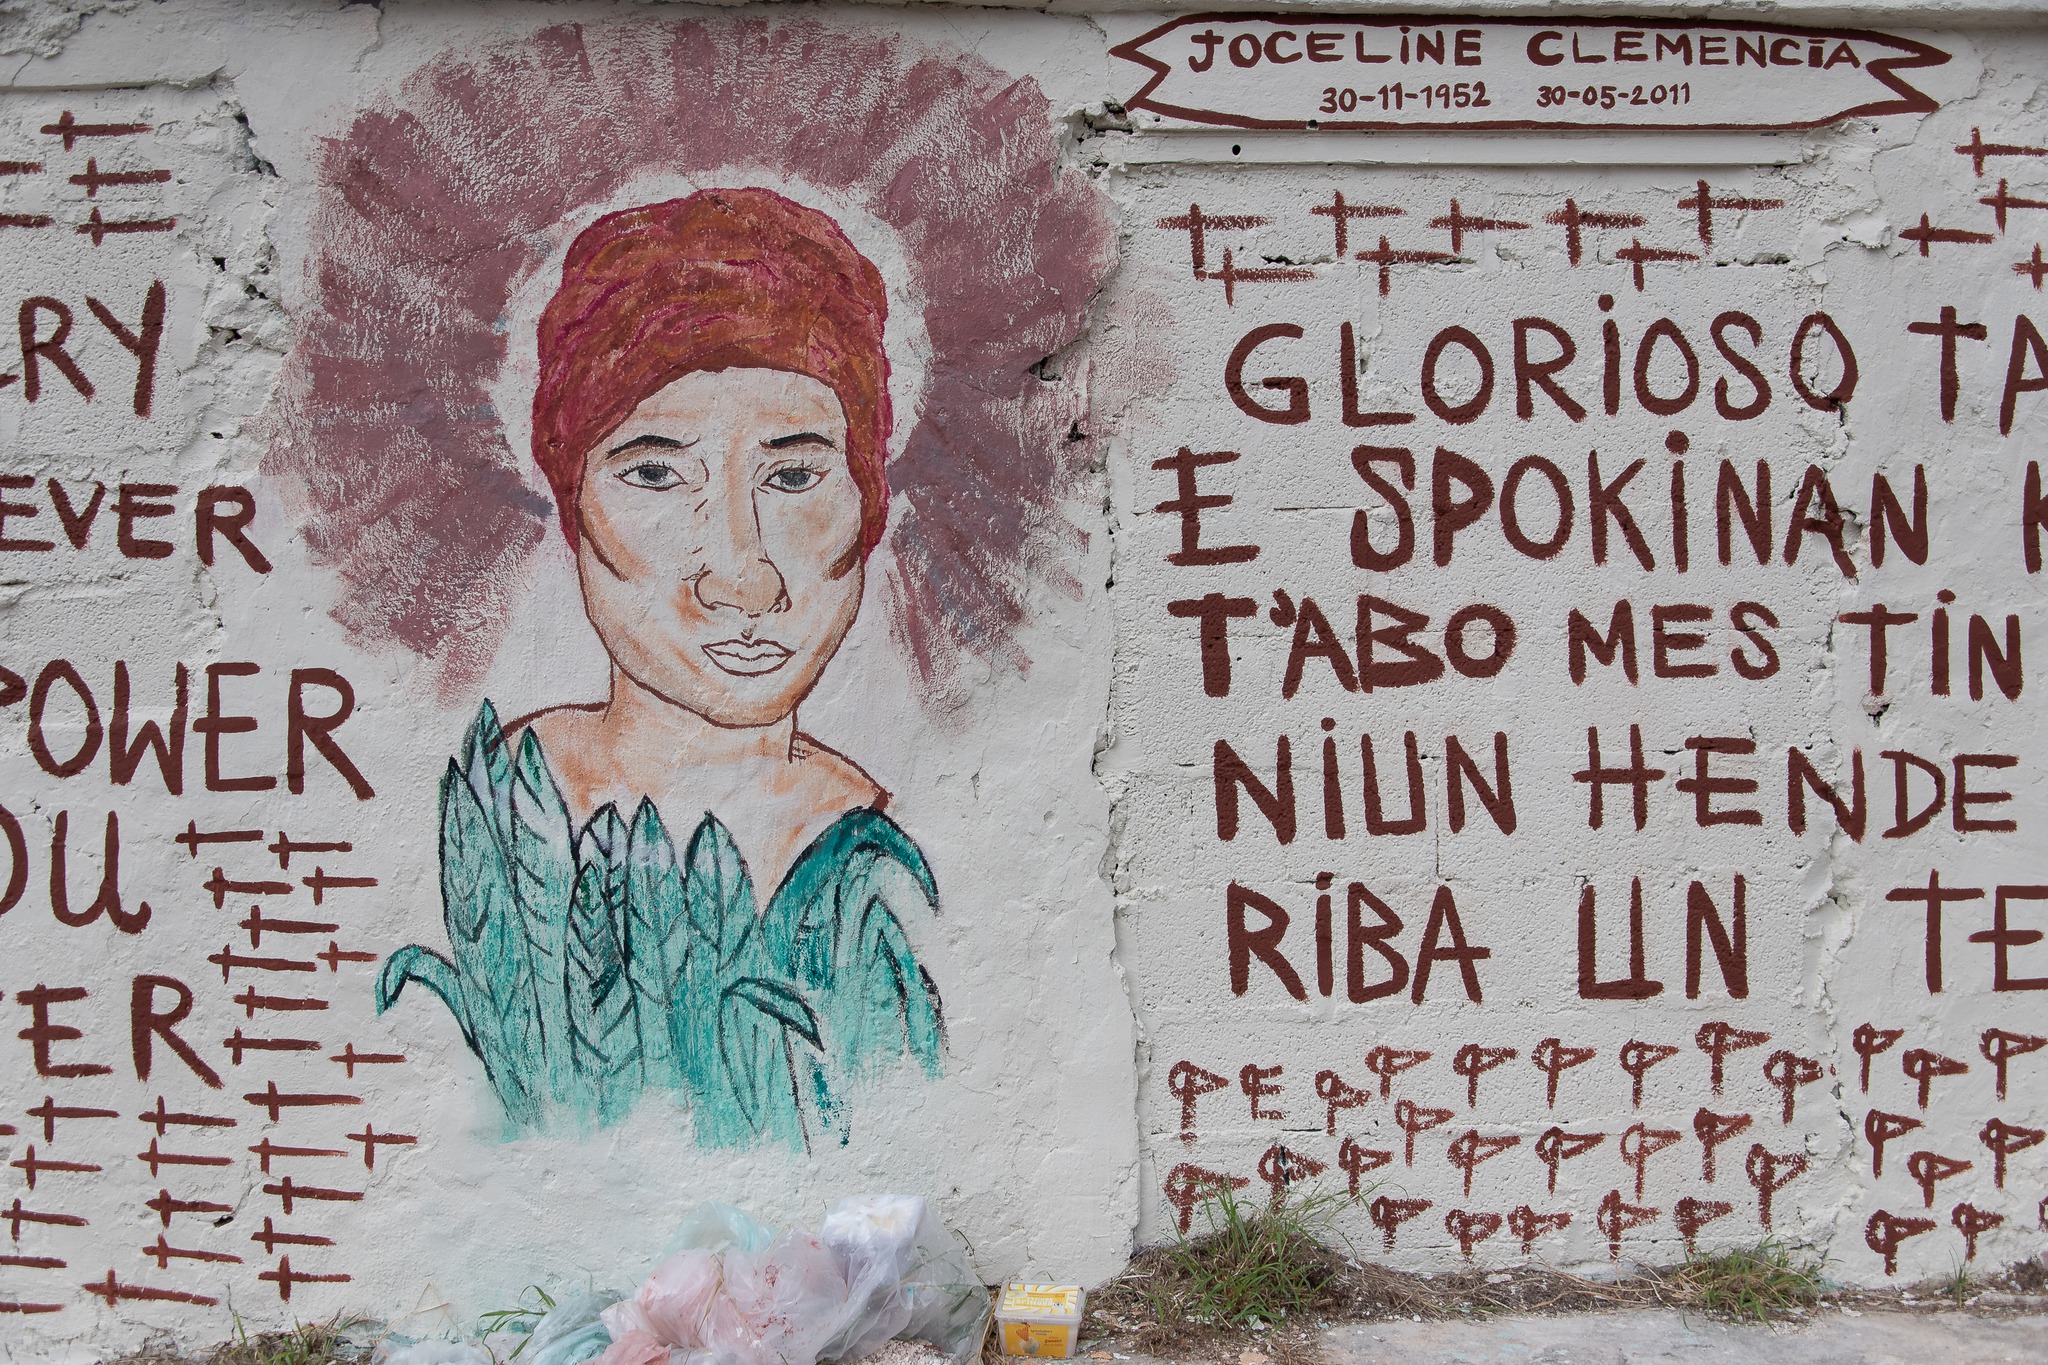 JOCELINE CLEMENCIA
30-11-1952 30-05-2011
RY
EVER
POWER
OU
ER
GLORIOSO TA
E SPOKINAN K
T'ABO MES TIN
NIUN HENDE
RIBA UN TE
PE